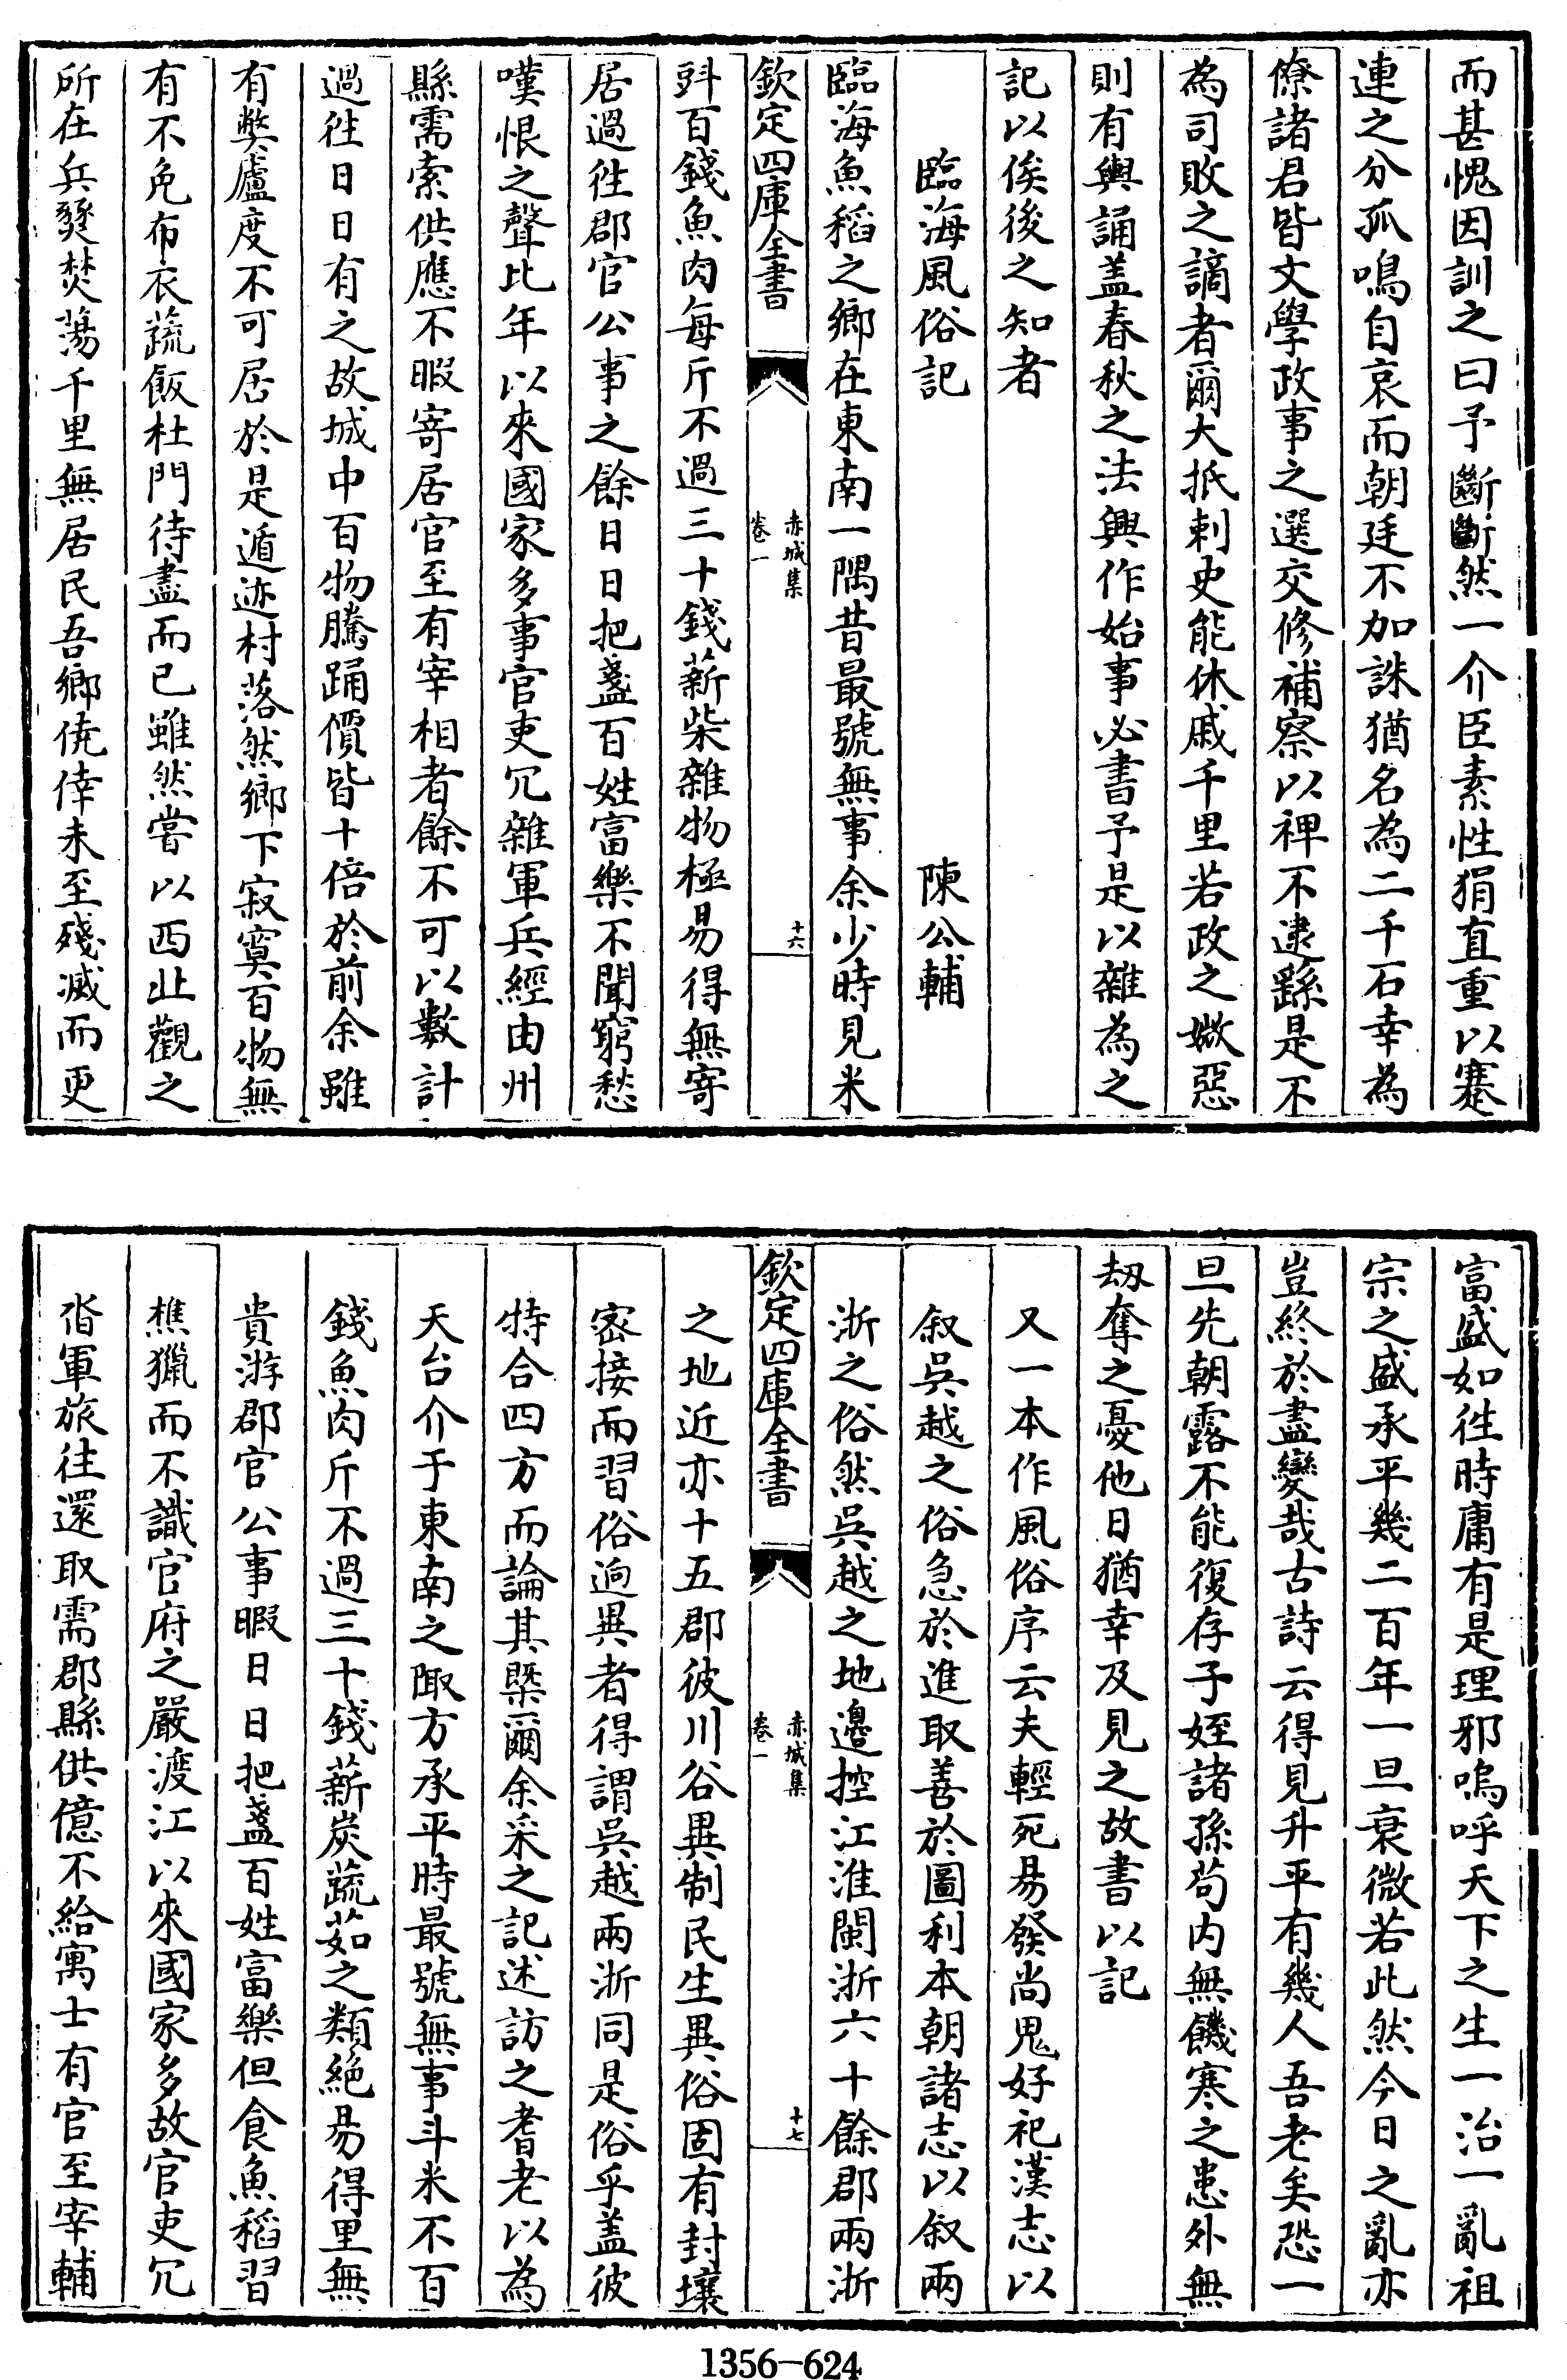 而甚愧因訓之曰予斷斷然一介臣素性狷直重以蹇
連之分孤鳴自哀而朝廷不加誅猶名為二千石幸為
僚諸君皆文學政事之選交修補察以禆不逮繇是不
為司敗之謫者爾大抵刺史能休戚千里若政之媺惡
則有輿誦盖春秋之法興作始事必書予是以雜為之
記以俟後之知者
臨海風俗記 陳公輔
臨海魚稻之鄉在東南一隅昔最號無事余少時見米
欽定四庫全書
赤城集
卷一
十六
㪷百錢魚肉每斤不過三十錢薪柴雜物極易得無寄
居過徃郡官公事之餘日日把盞百姓富樂不聞窮愁
嘆恨之聲比年以來國家多事官吏冗雜軍兵經由州
縣需索供應不暇寄居官至有宰相者餘不可以數計
過徃日日有之故城中百物騰踊價皆十倍於前余雖
有弊廬度不可居於是遁迹村落然鄉下寂寞百物無
有不免布衣蔬飯杜門待盡而已雖然嘗以西北觀之
所在兵㷼焚蕩千里無居民吾鄉僥倖未至殘滅而更
富盛如徃時庸有是理邪嗚呼天下之生一治一亂祖
宗之盛承平幾二百年一旦衰微若此然今日之亂亦
豈終於盡變哉古詩云得見升平有幾人吾老矣恐一
旦先朝露不能復存子姪諸孫茍内無饑寒之患外無
刼奪之憂他日猶幸及見之故書以記
又一本作風俗序云夫輕死易發尚鬼好祀漢志以
叙吳越之俗急於進取善於圖利本朝諸志以叙兩
浙之俗然吳越之地邊控江淮閩浙六十餘郡兩浙
欽定四庫全書
赤城集
卷一
十七
之地近亦十五郡彼川谷異制民生異俗固有封壤
密接而習俗逈異者得謂吳越兩浙同是俗乎盖彼
特合四方而論其槩爾余采之記述訪之耆老以為
天台介于東南之陬方承平時最號無事斗米不百
錢魚肉斤不過三十錢薪炭蔬茹之類絶易得里無
貴游郡官公事暇日日把盞百姓富樂但食魚稻習
樵獵而不識官府之嚴渡江以來國家多故官吏冗
㳫軍旅往還取需郡縣供億不給寓士有官至宰輔
1356-624